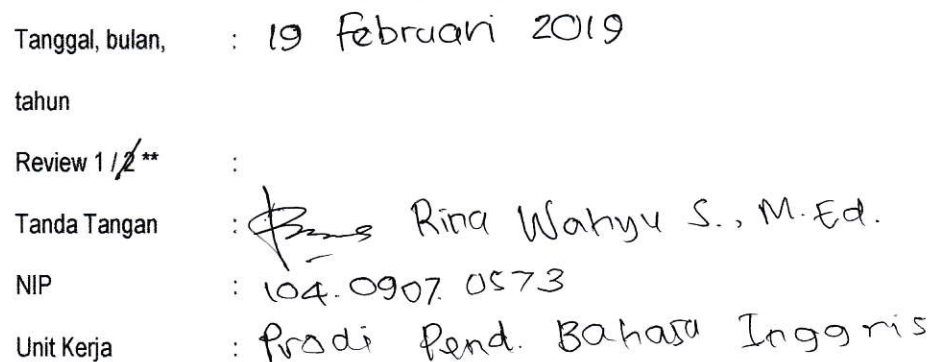 Tanggal, bulan, : 19 Februari 2019
tahun
Review 1 / 2 ** :
Tanda Tangan : Rina Wahyu S., M.Ed.
NIP : 104.0907.0573
Unit Kerja : Prodi Pend. Bahasa Inggris